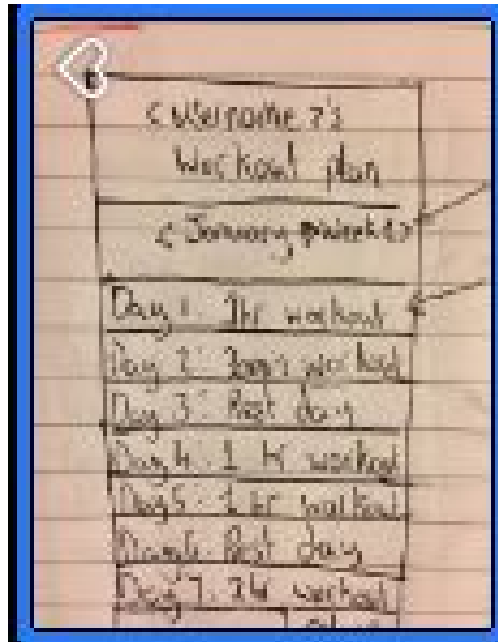 <Username>'s
Workout plan
< January Week 1>
Day 1: 1hr workout
Day 2: 30min workout
Day 3: Rest day
Day 4: 1 hr workout
Day 5: 1 hr workout
Day 6: Rest day
Day 7: 2hr workout